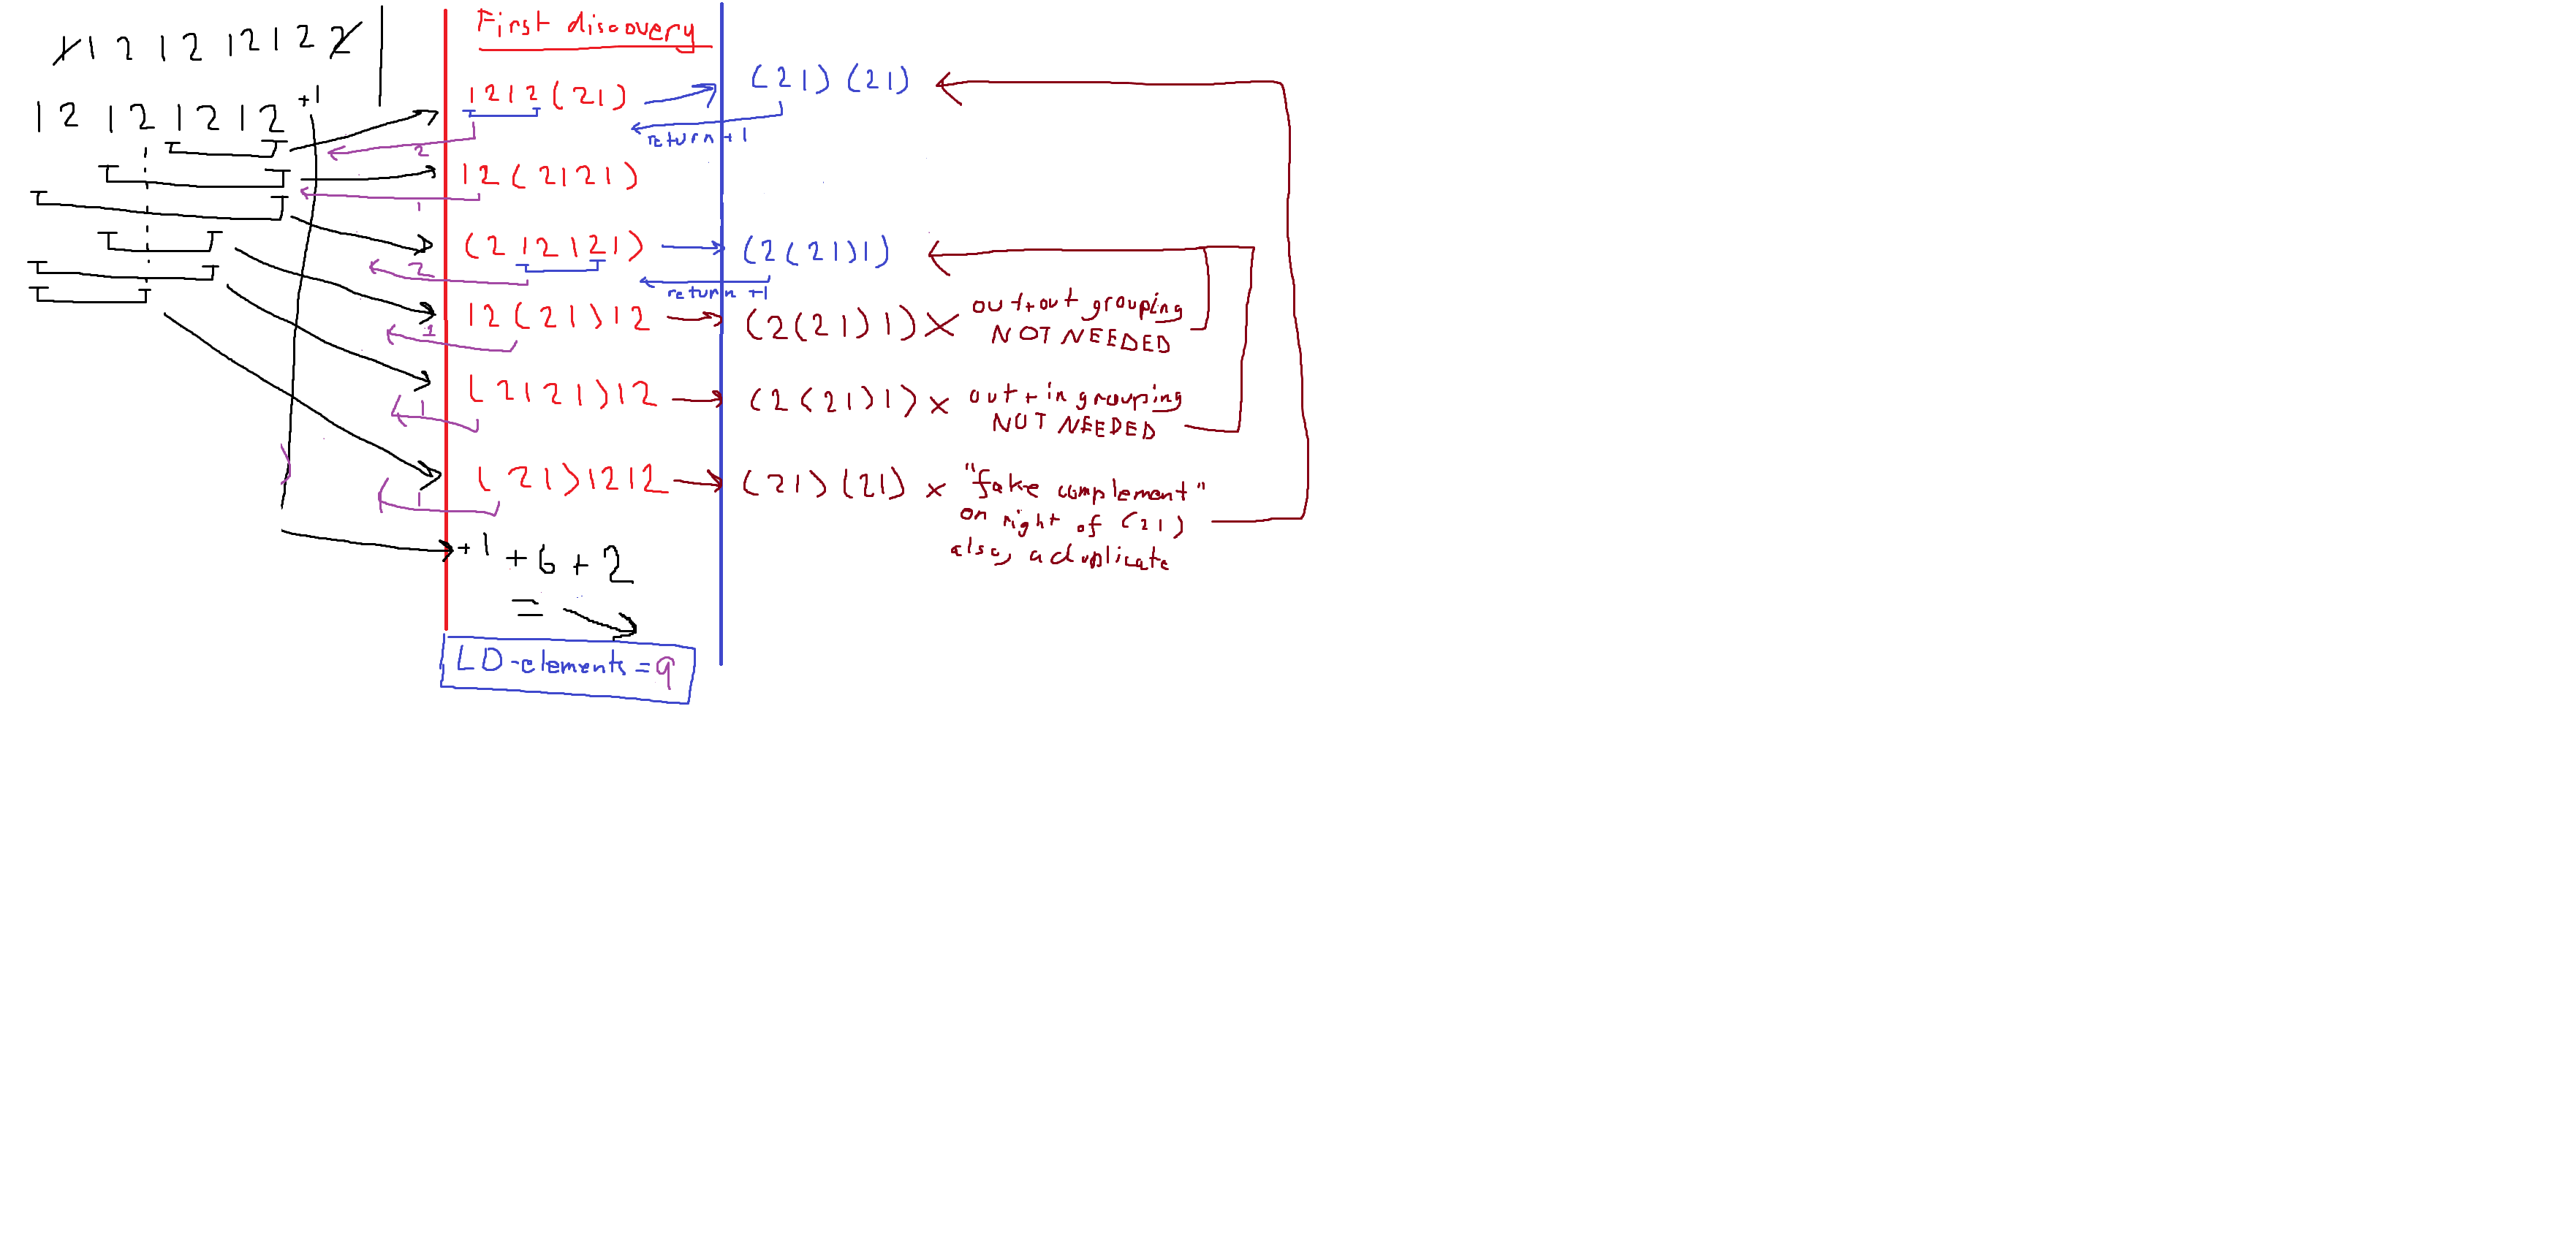 1 1 2 1 2 1 2 1 2 2
1 2 1 2 1 2 1 2 +1
First discovery
1212(21)
(21)(21)
return +1
2
12(2121)
1
(212121)
(2(21)1)
2
return +1
12(21)12
(2(21)1) × out+out grouping
NOT NEEDED
1
(2121)12
(2(21)1) × out+in grouping
NOT NEEDED
1
(21)1212
(21)(21) × "fake complement"
on right of (21)
also, a duplicate
1
+1 +6 +2
=
LD-elements = 9